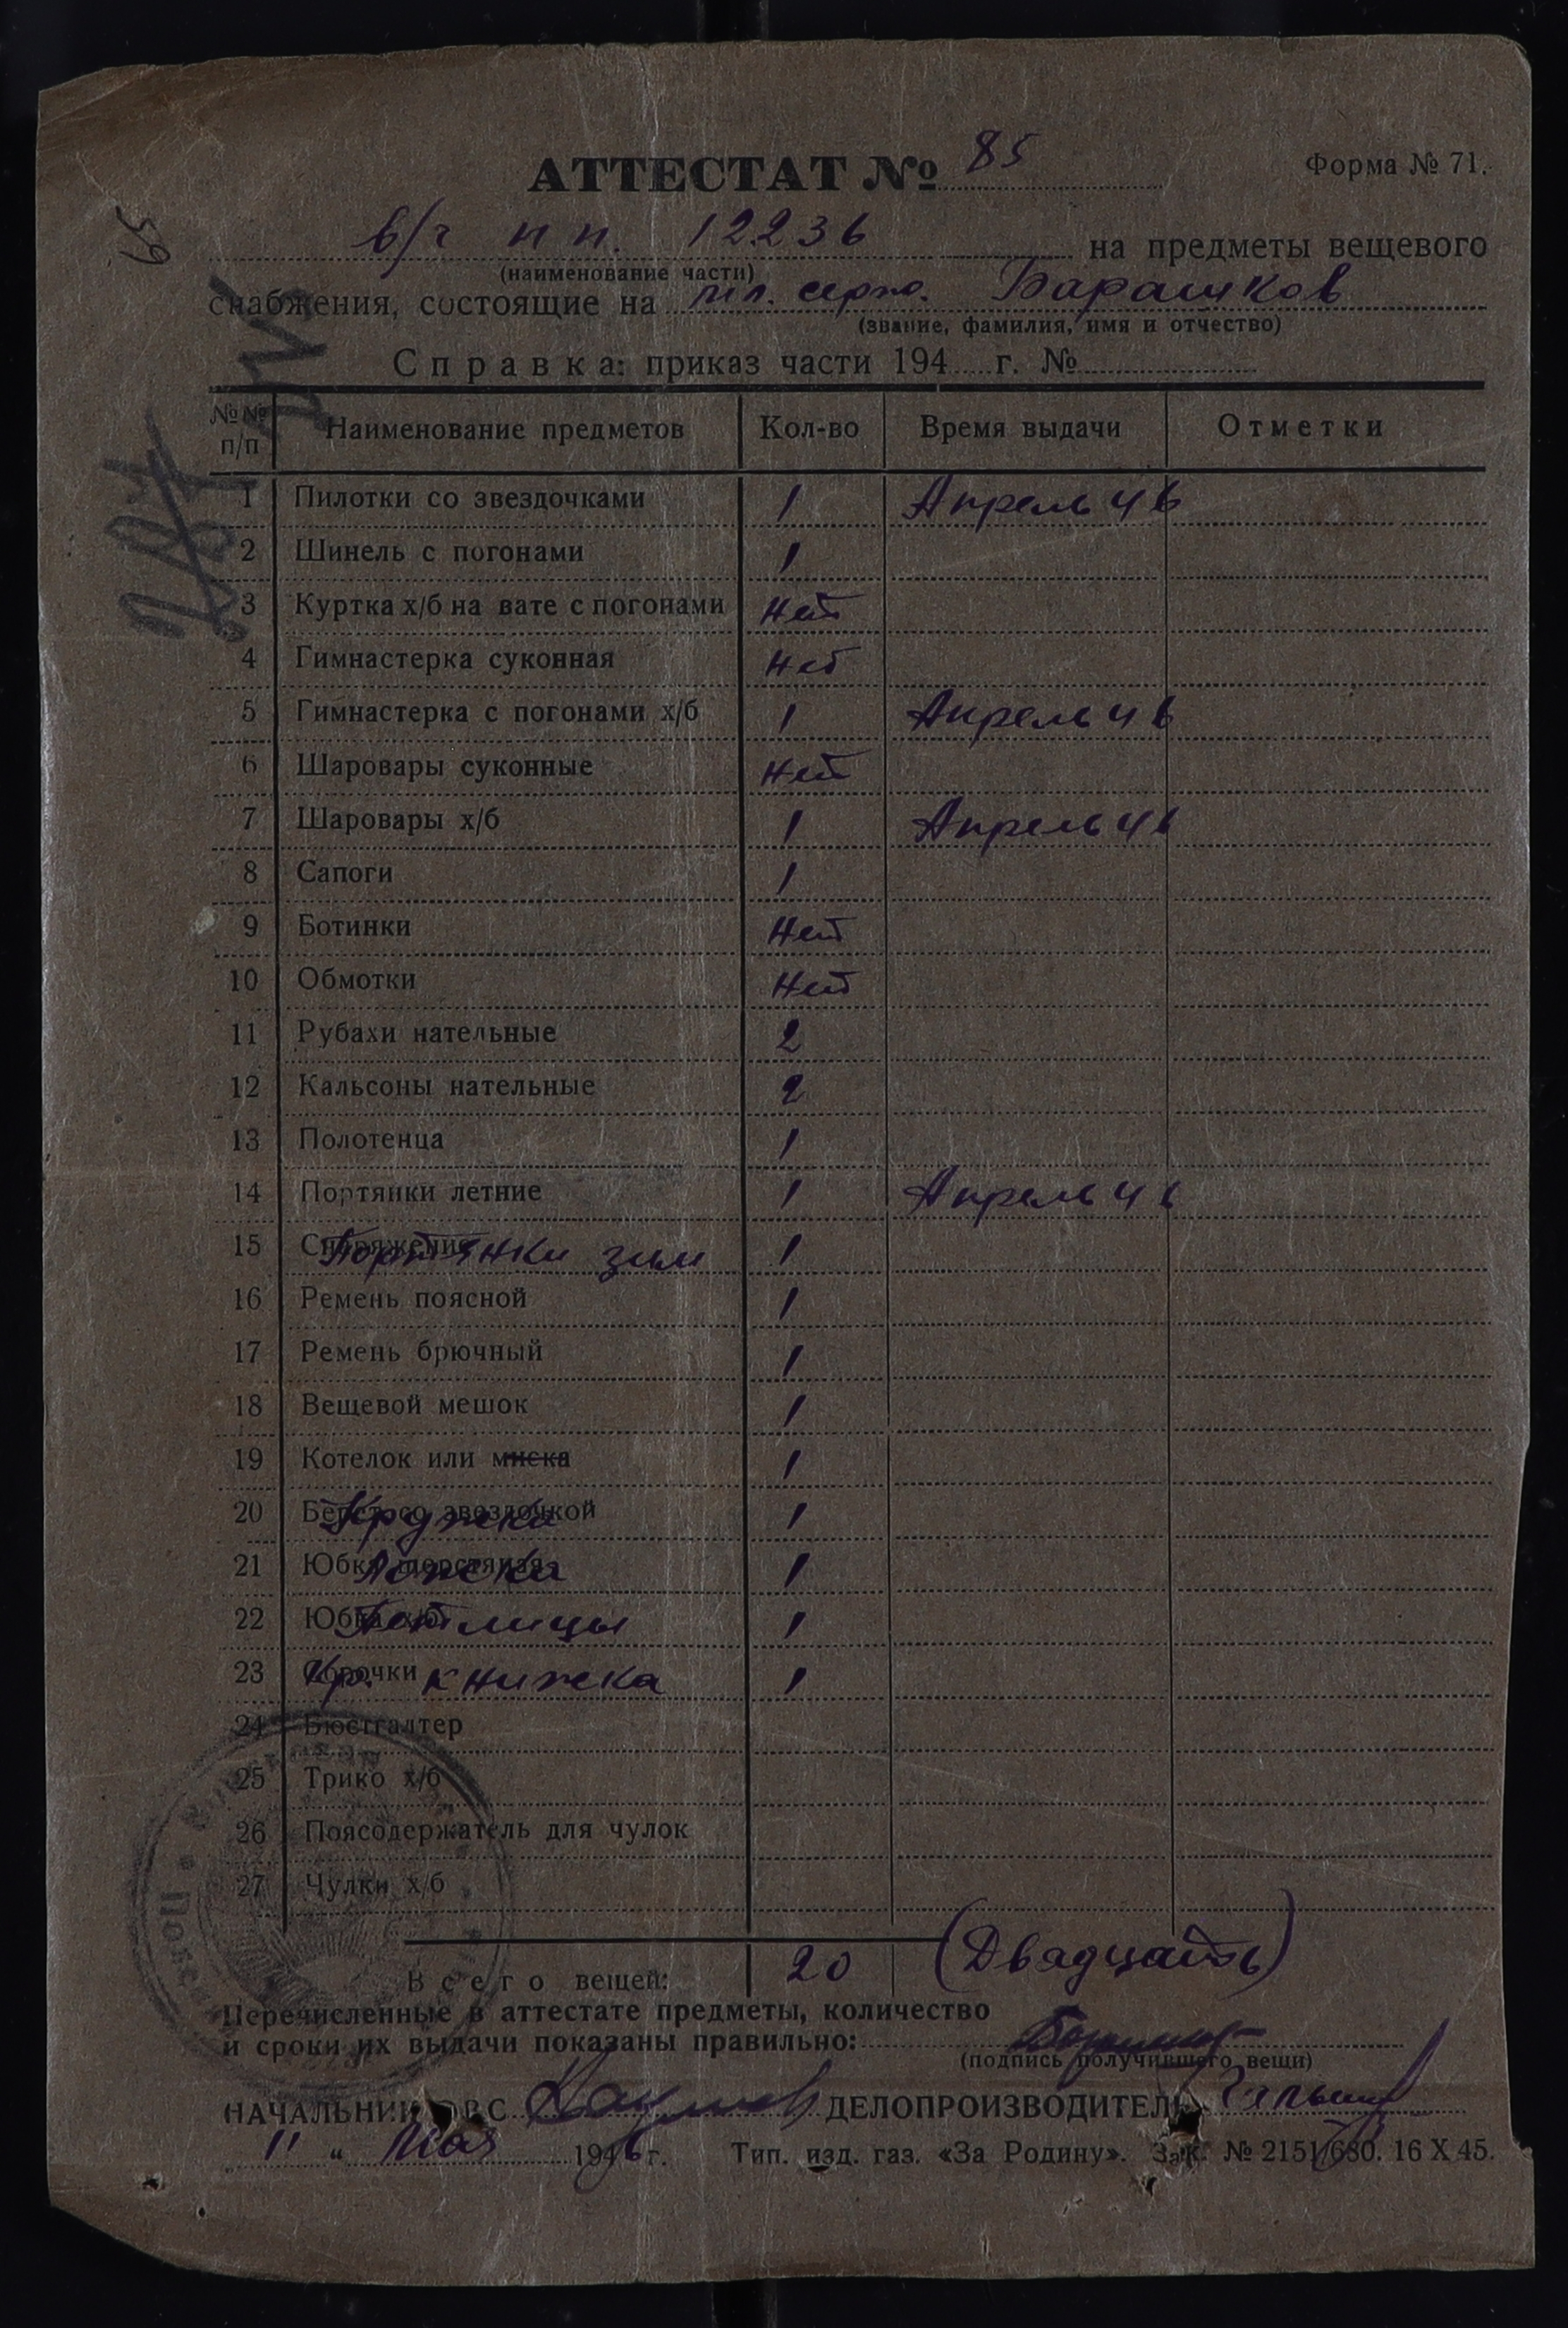 АТТЕСТАТ № 85
Форма № 71.
59
в/ч п п. 12236 на предметы вещевого
(наименование части)
снабжения, состоящие на мл. серж. Барашков
(звание, фамилия, имя и отчество)
Справка: приказ части 194 г. №
№№ п/п Наименование предметов Кол-во Время выдачи Отметки
1 Пилотки со звездочками 1 Апрель 46
2 Шинель с погонами 1
3 Куртка х/б на вате с погонами нет
4 Гимнастерка суконная нет
5 Гимнастерка с погонами х/б 1 Апрель 46
6 Шаровары суконные нет
7 Шаровары х/б 1 Апрель 46
8 Сапоги 1
9 Ботинки нет
10 Обмотки нет
11 Рубахи нательные 2
12 Кальсоны нательные 2
13 Полотенца 1
14 Портянки летние 1 Апрель 46
15 Снаряжение Портянки зим 1
16 Ремень поясной 1
17 Ремень брючный 1
18 Вещевой мешок 1
19 Котелок или миска 1
20 Берет со звездочкой Кружка 1
21 Юбка шерстяная Ложка 1
22 Юбка х/б Петлицы 1
23 Сорочки Кр. книжка 1
24 Бюстгалтер
25 Трико х/б
26 Поясодержатель для чулок
27 Чулки х/б
Всего вещей: 20 (Двадцать)
Перечисленные в аттестате предметы, количество
и сроки их выдачи показаны правильно:
(подпись получившего вещи)
НАЧАЛЬНИК ОВС ДЕЛОПРОИЗВОДИТЕЛЬ
" 11 " мая 1946 г. Тип. изд. газ. «За Родину». Зак. № 2151/680. 16 X 45.